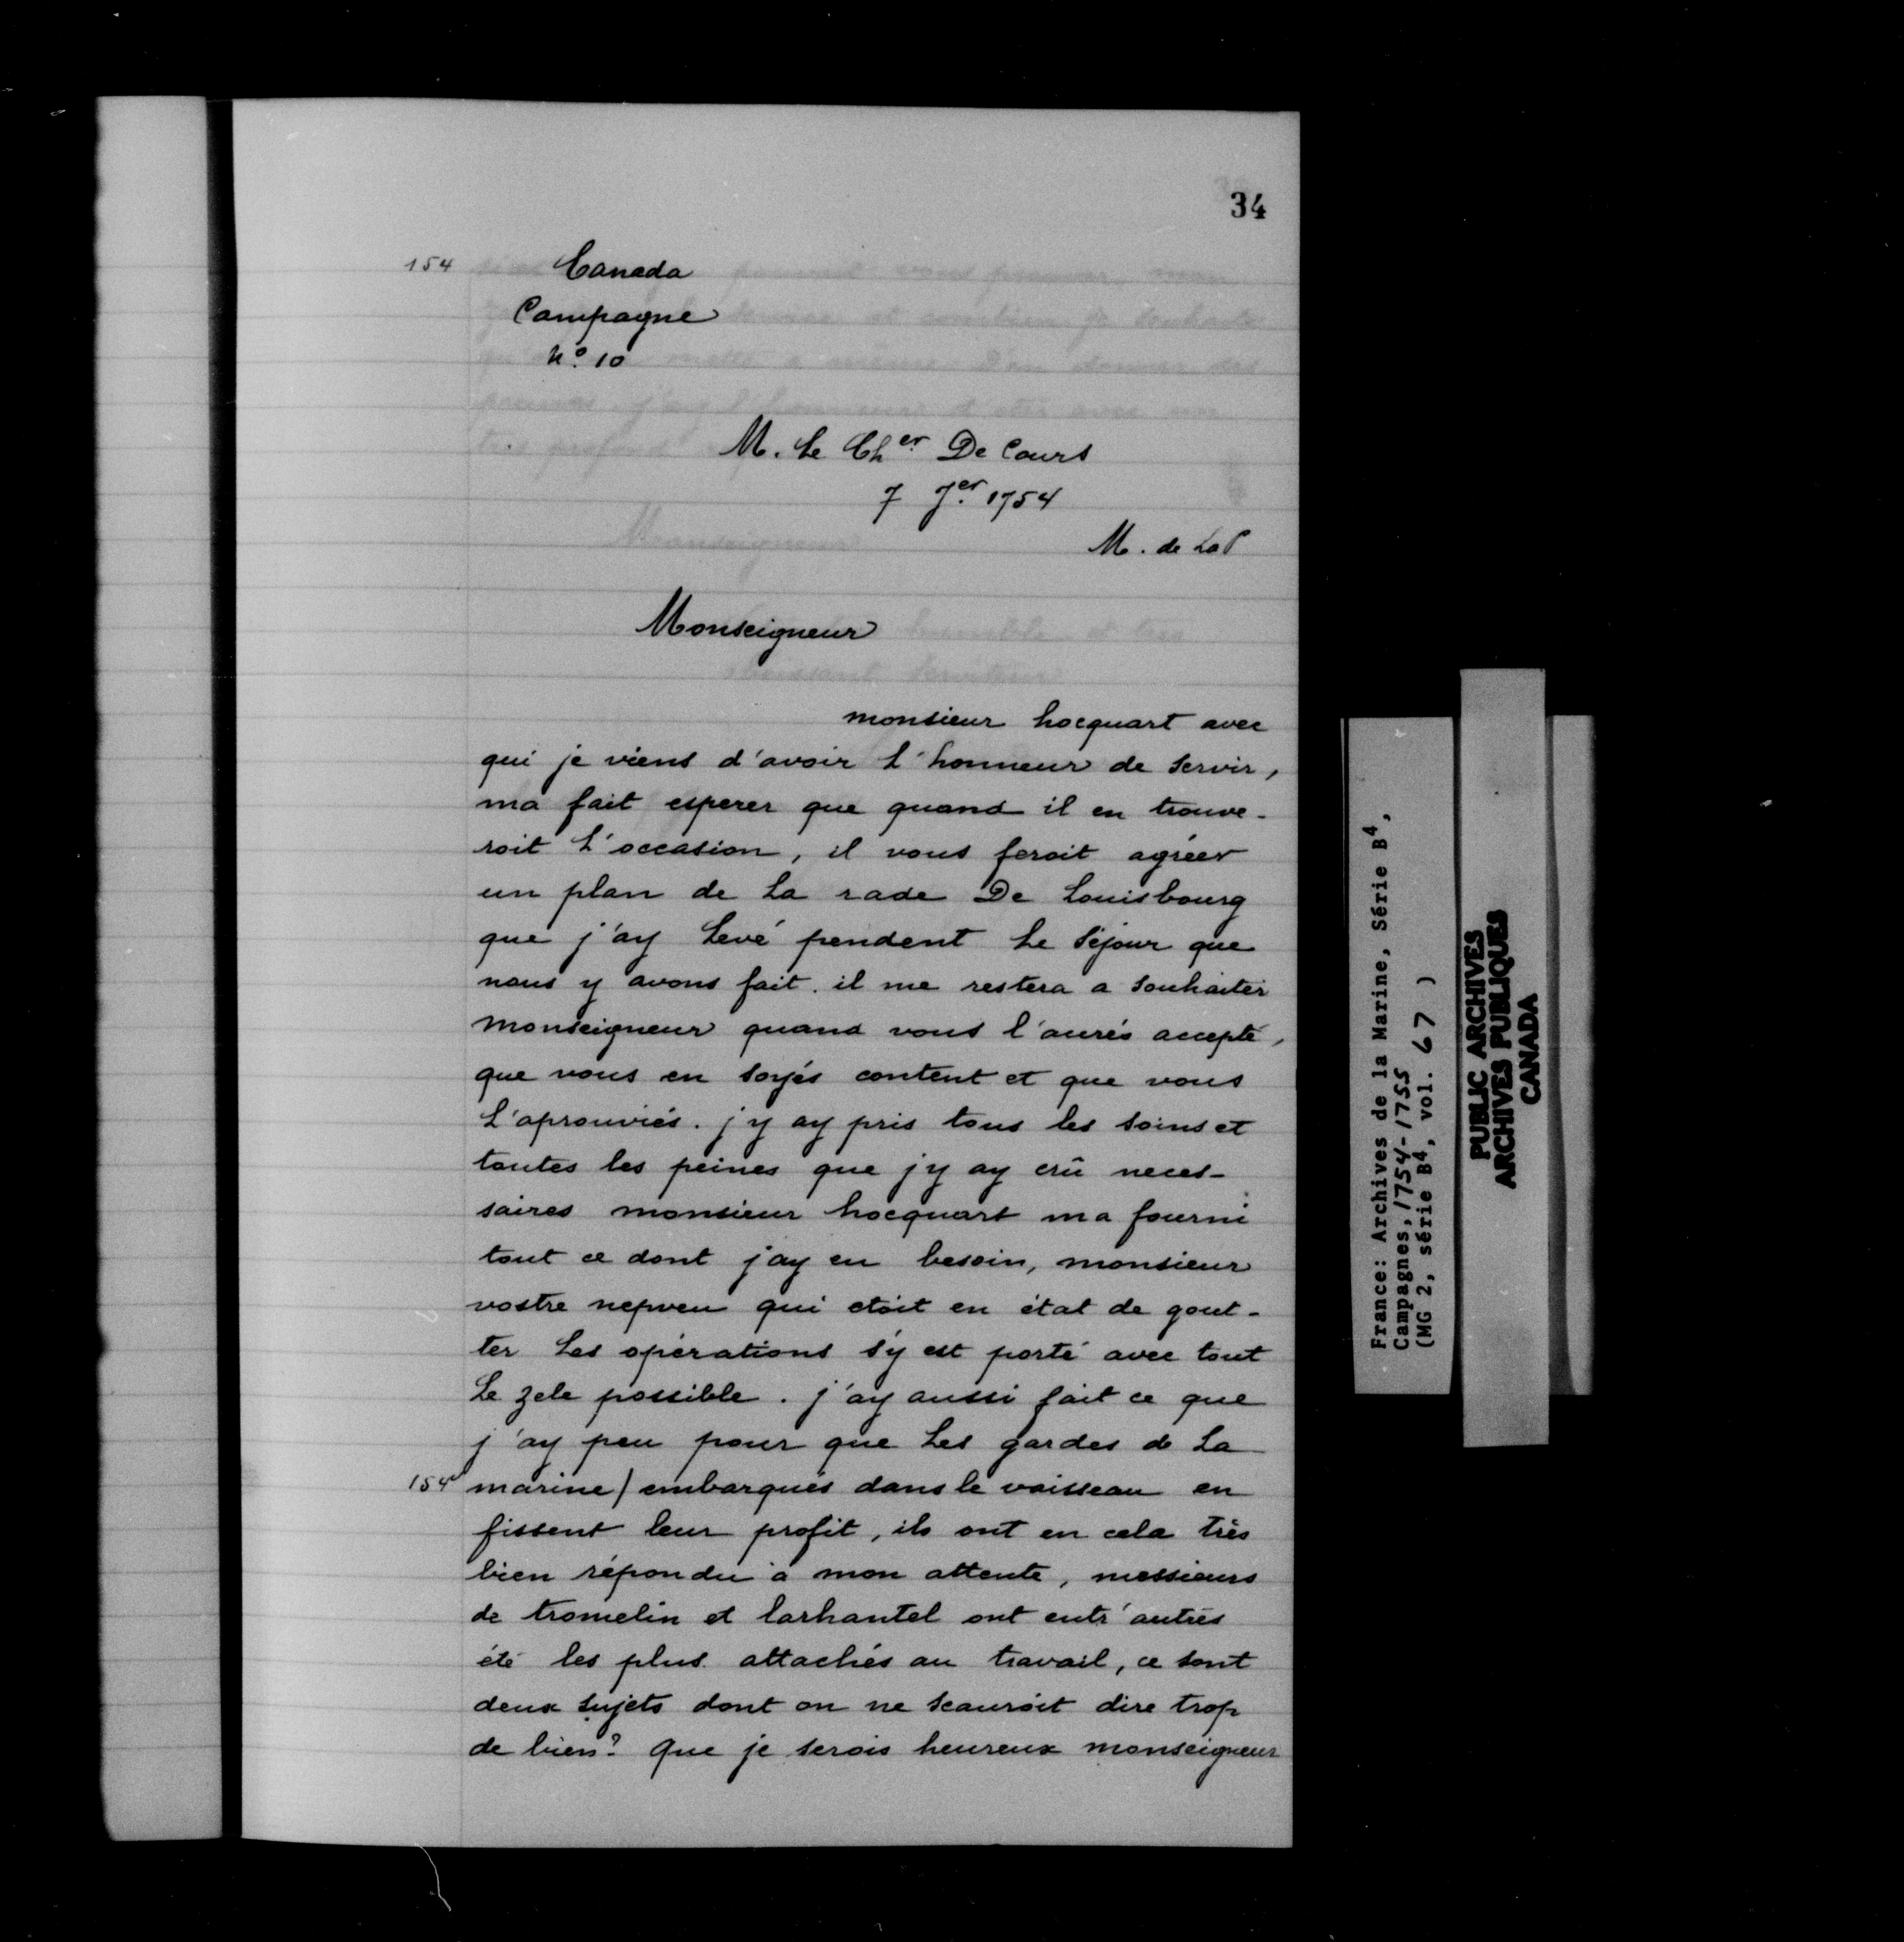 34
154 Canada
Campagne
N.º 10
M. Le Cher De Cours
7 Jer 1754
M. de LaP
Monseigneur
monsieur hocquart avec
qui je viens d'avoir l'honneur de servir,
ma fait esperer que quand il en trouve-
roit l'occasion, il vous feroit agréer
un plan de La rade De Louisbourg
que j'ay Levé pendent Le Séjour que
nous y avons fait. il me restera a souhaiter
monseigneur quand vous l'aurés accepté,
que vous en soyés content et que vous
L'aprouviés. j'y ay pris tous les soins et
toutes les peines que j'y ay crû neces-
saires monsieur hocquart ma fourni
tout ce dont j'ay eu besoin, monsieur
vostre nepveu qui etoit en état de gout-
ter Les opérations s'y est porté avec tout
Le zele possible. j'ay aussi fait ce que
j'ay peu pour que Les gardes de La
154 marine/ embarqués dans le vaisseau en
fissent leur profit, ils ont en cela très
bien répondu à mon attente, messieurs
de tromelin et larhantel ont entr'autres
été les plus attachés au travail, ce sont
deux sujets dont on ne scauroit dire trop
de bien? Que je serois heureux monseigneur
France: Archives de la Marine, Série B4,
Campagnes, 1754-1755
(MG 2, série B4, vol. 67 )
PUBLIC ARCHIVES
ARCHIVES PUBLIQUES
CANADA